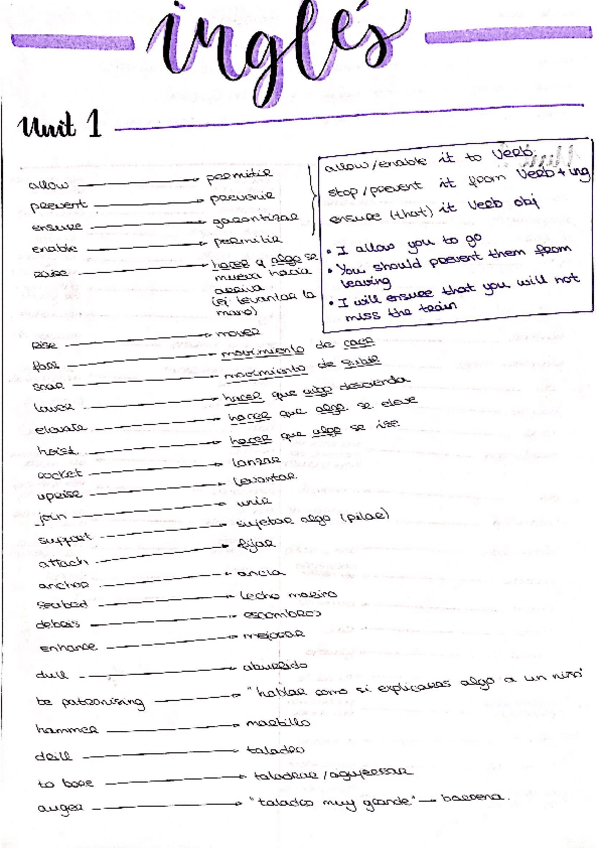 inglés
Unit 1
allow → permitir
prevent → prevenir
ensure → garantizar
enable → permitir
raise → hacer q algo se
mueva hacia
arriva
(ej levantar la
mano)
allow/enable it to Verb.
stop/prevent it from Verb + ing
ensure (that) it Verb obj
• I allow you to go
• You should prevent them from
leaving
• I will ensure that you will not
miss the train
rise → mover
fall → movimiento de caer
soar → movimiento de subir
lower → hacer que algo descienda
elevate → hacer que algo se eleve
hoist → hacer que algo se ize
rocket → lanzar
upraise → levantar
join → unir
support → sujetar algo (pilar)
attach → fijar
anchor → ancla
seabed → lecho marino
debris → escombros
enhance → mejorar
dull → aburrido
be patronising → "hablar como si explicaras algo a un niño"
hammer → martillo
drill → taladro
to bore → taladrar/agujerear
auger → "taladro muy grande" → barrena.